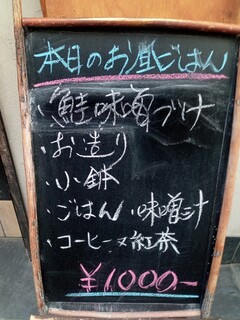 本日のお昼ごはん
・鮭味噌づけ
・お造り
・小鉢
・ごはん 味噌汁
・コーヒーヌ紅茶
¥1000-